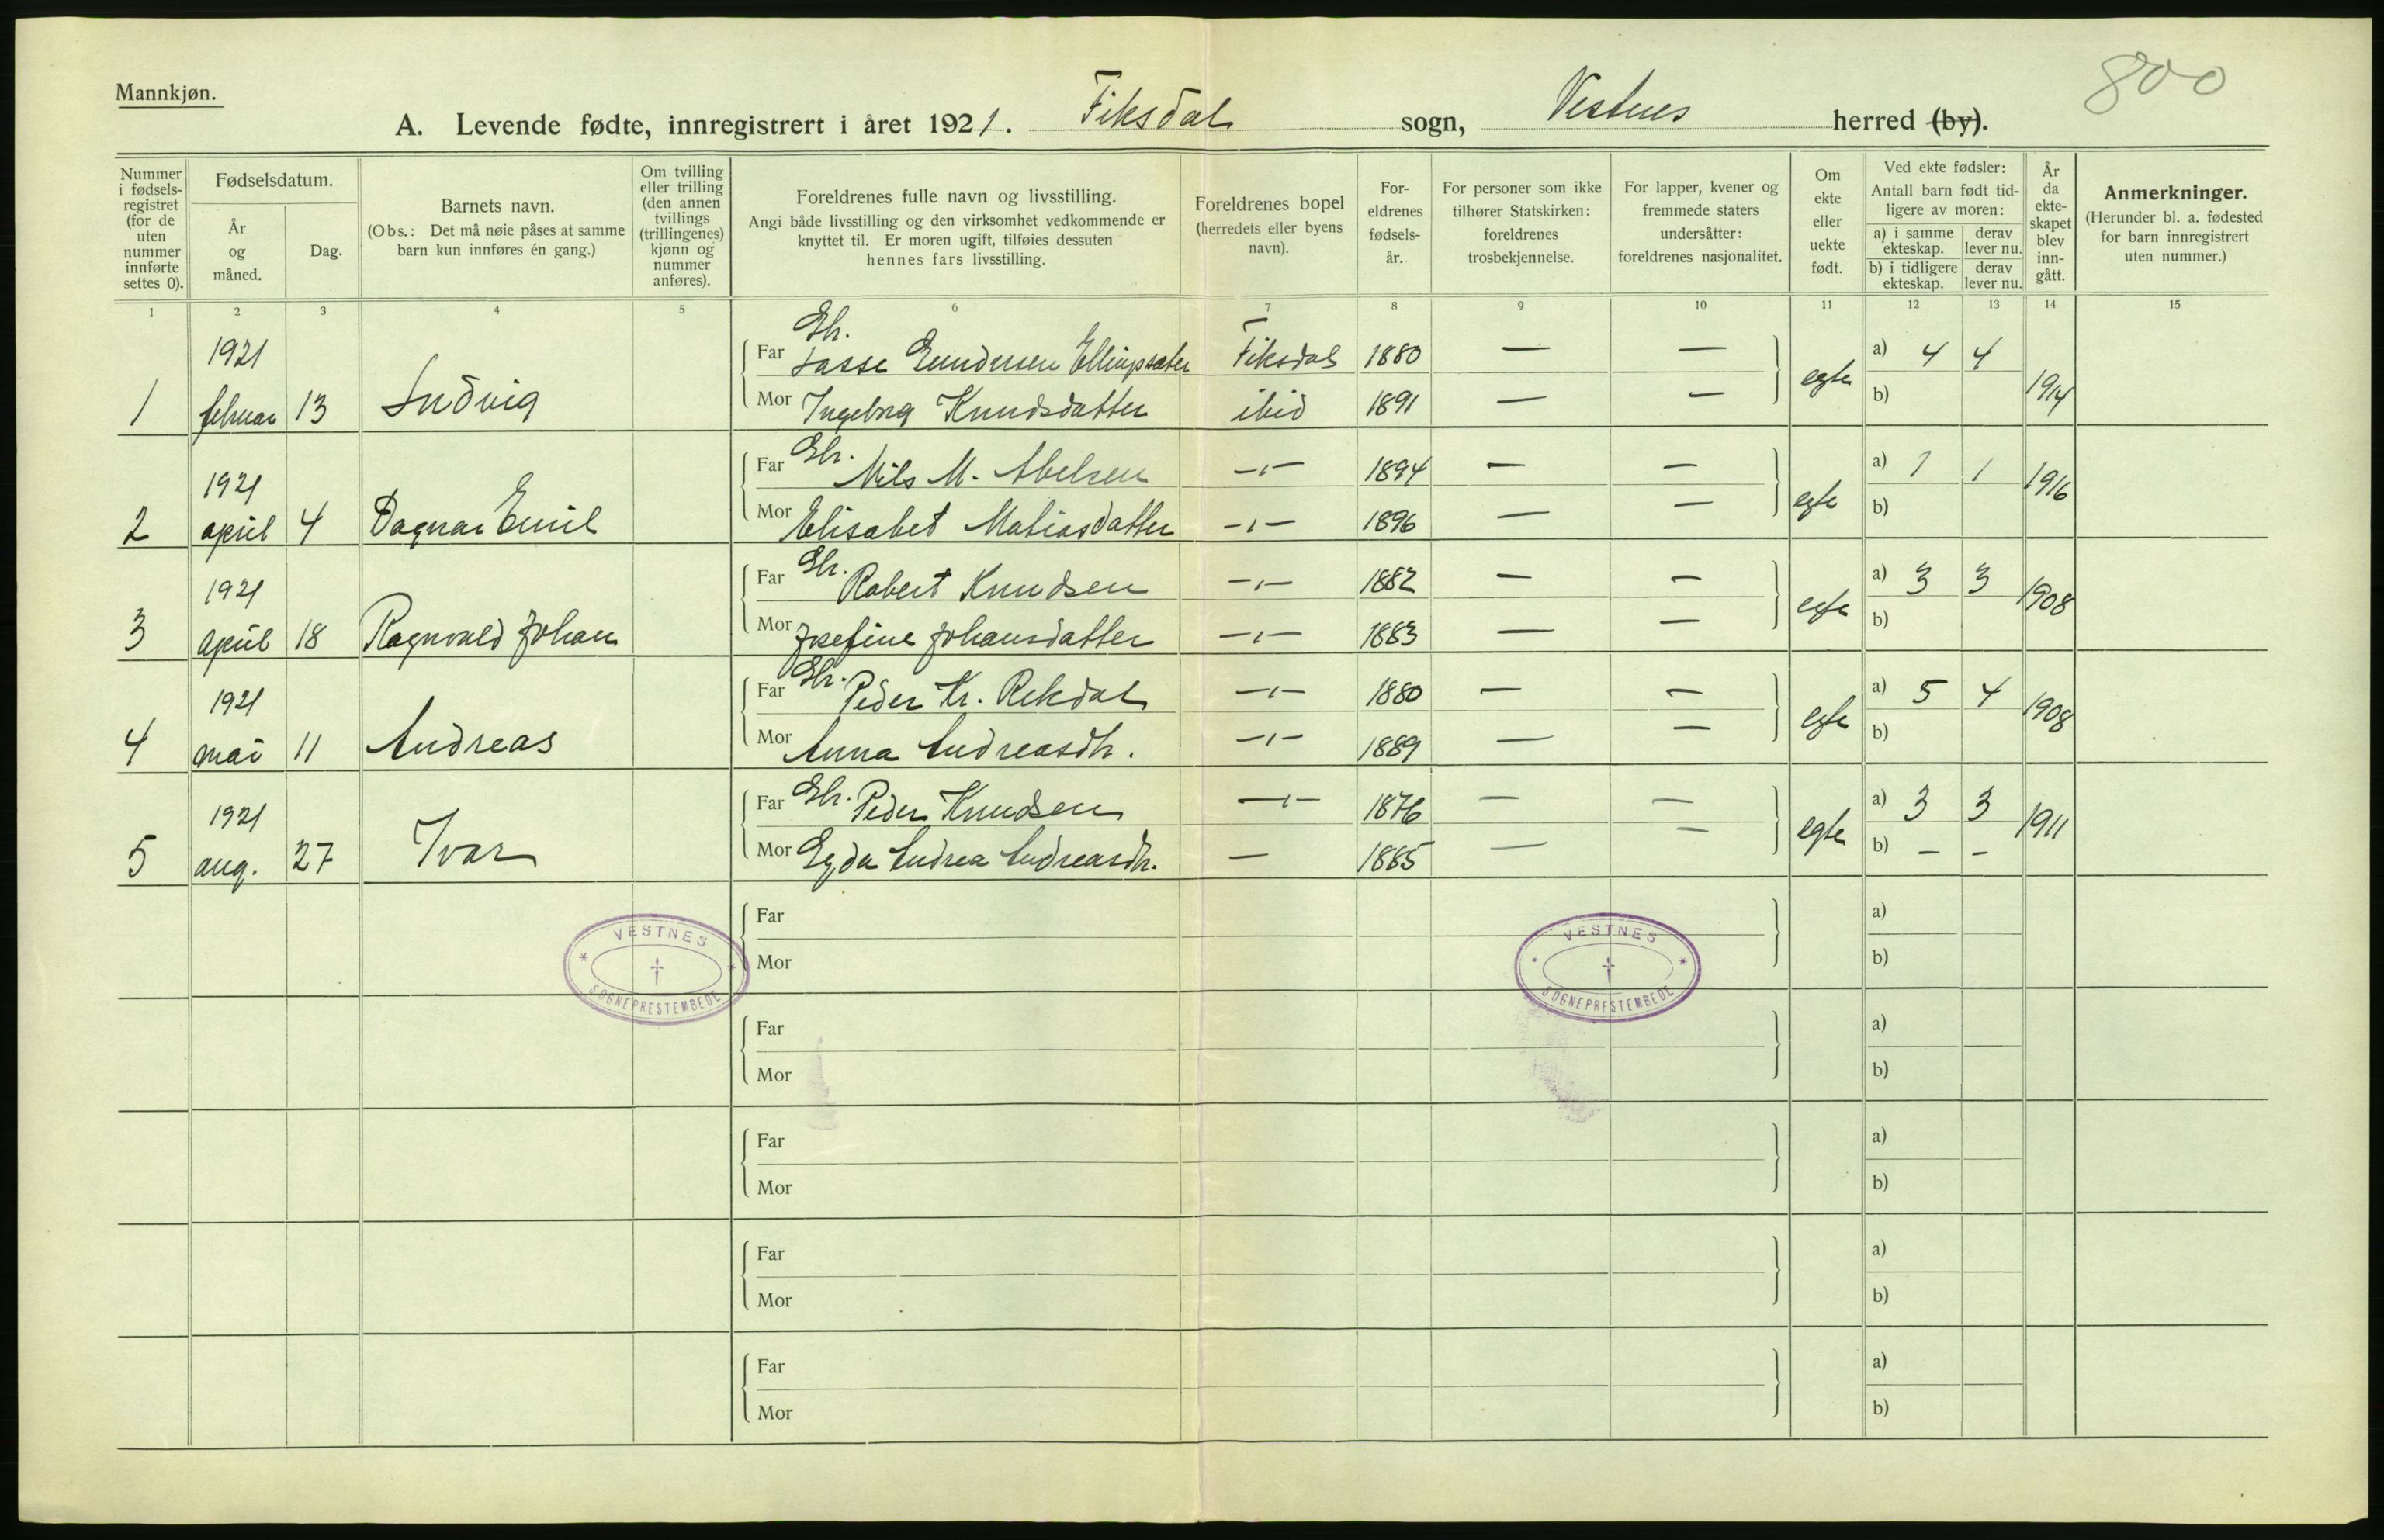 800
Mannkjøn.
A. Levende fødte, innregistrert i året 1921. Fiksdal sogn, Vestnes herred (by).
Nummer i fødsels-registret (for de uten nummer innførte settes 0).
Fødselsdatum.
År og måned.
Dag.
Barnets navn.
(Obs.: Det må nøie påses at samme barn kun innføres én gang.)
Om tvilling eller trilling (den annen tvillings (trillingenes) kjønn og nummer anføres).
Foreldrenes fulle navn og livsstilling.
Angi både livsstilling og den virksomhet vedkommende er knyttet til. Er moren ugift, tilføies dessuten hennes fars livsstilling.
Foreldrenes bopel (herredets eller byens navn).
For-eldrenes fødsels-år.
For personer som ikke tilhører Statskirken: foreldrenes trosbekjennelse.
For lapper, kvener og fremmede staters undersåtter: foreldrenes nasjonalitet.
Om ekte eller uekte født.
Ved ekte fødsler:
Antall barn født tid-ligere av moren:
a) i samme ekteskap. derav lever nu.
b) i tidligere ekteskap. derav lever nu.
År da ekte-skapet blev inn-gått.
Anmerkninger.
(Herunder bl. a. fødested for barn innregistrert uten nummer.)
1 2 3 4 5 6 7 8 9 10 11 12 13 14 15
1 1921 februar 13 Ludvig
Far Gbr. Lasse Gundersen Ellingsæter Fiksdal 1880 — — a) 4 4
Mor Ingeborg Knudsdatter ibid 1891 — — egte b) 1914
2 1921 april 4 Dagnar Emil
Far Gbr. Nils M. Abelsen —"— 1894 — — a) 1 1
Mor Elisabet Matiasdatter —"— 1896 — — egte b) 1916
3 1921 april 18 Ragnvald Johan
Far Gbr. Robert Knudsen —"— 1882 — — a) 3 3
Mor Josefine Johansdatter —"— 1883 — — egte b) 1908
4 1921 mai 11 Andreas
Far Gbr. Peder Kr. Rekdal —"— 1880 — — a) 5 4
Mor Anna Andreasdtr. —"— 1889 — — egte b) 1908
5 1921 aug. 27 Ivar
Far Gbr. Peder Knudsen —"— 1876 — — a) 3 3
Mor Egda Andrea Andreasdtr. — 1885 — — egte b) — — 1911
Far a)
Mor b)
VESTNES
SOGNEPRESTEMBEDE
VESTNES
SOGNEPRESTEMBEDE
Far a)
Mor b)
Far a)
Mor b)
Far a)
Mor b)
Far a)
Mor b)